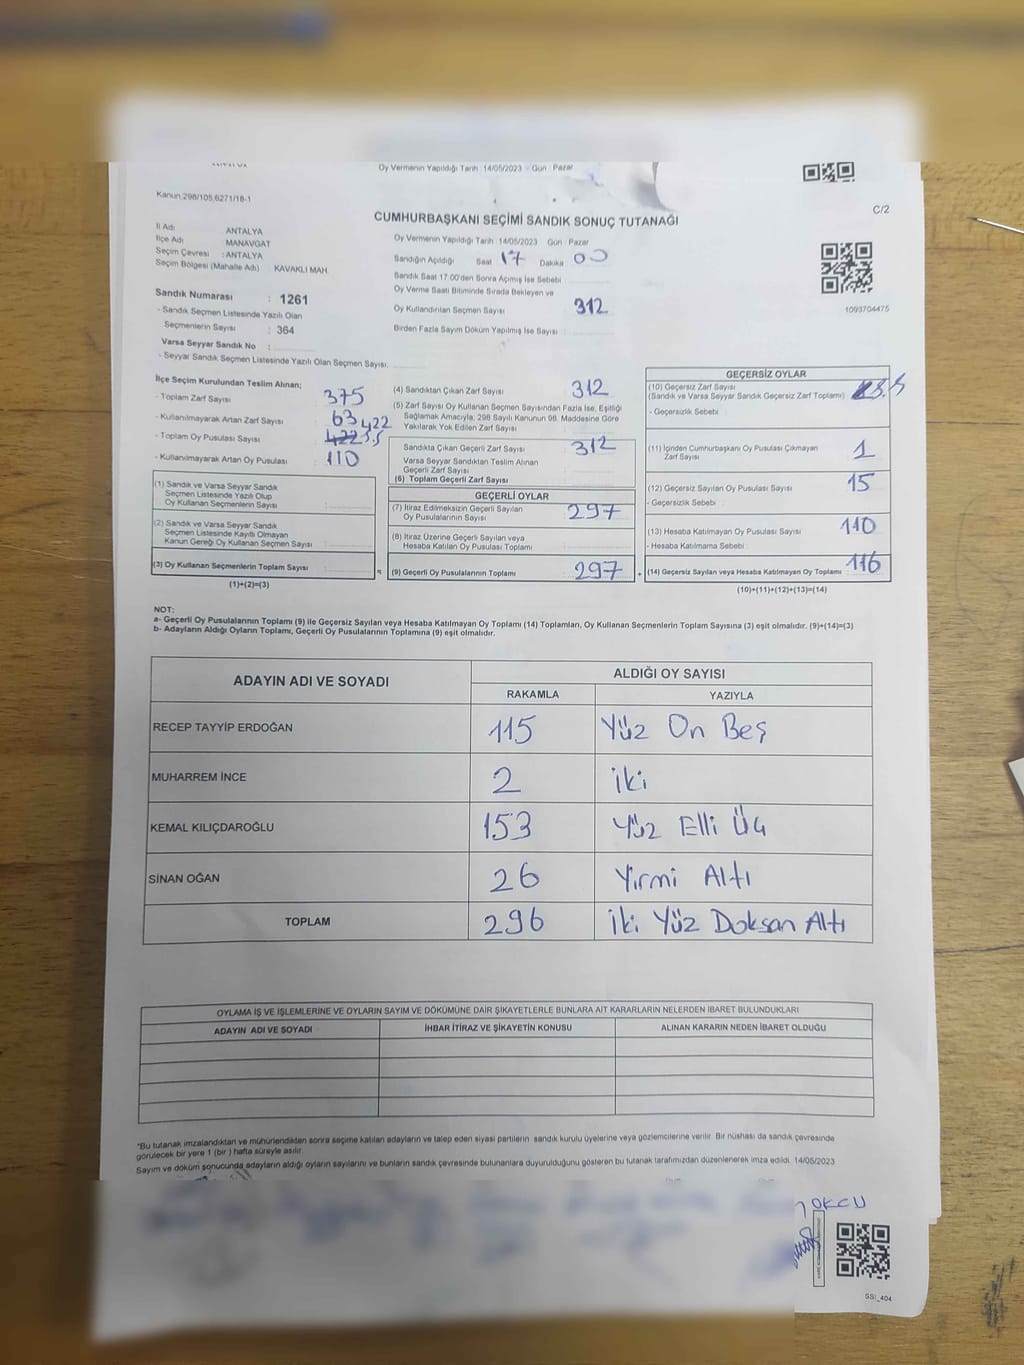 Oy Vermenin Yapıldığı Tarih 14/05/2023 - Gün : Pazar
Kanun.298/105,6271/18-1
C/2
CUMHURBAŞKANI SEÇİMİ SANDIK SONUÇ TUTANAĞI
İl Adı ANTALYA
İlçe Adı MANAVGAT
Seçim Çevresi : ANTALYA
Seçim Bölgesi (Mahalle Adı) : KAVAKLI MAH.
Sandık Numarası : 1261
- Sandık Seçmen Listesinde Yazılı Olan
Seçmenlerin Sayısı : 364
Varsa Seyyar Sandık No :
- Seyyar Sandık Seçmen Listesinde Yazılı Olan Seçmen Sayısı:
Oy Vermenin Yapıldığı Tarih 14/05/2023 Gün : Pazar
Sandığın Açıldığı Saat 17 Dakika 00
Sandık Saat 17:00'den Sonra Açılmış İse Sebebi :
Oy Verme Saati Bitiminde Sırada Bekleyen ve
Oy Kullandırılan Seçmen Sayısı : 312
Birden Fazla Sayım Döküm Yapılmış İse Sayısı :
1093704475
İlçe Seçim Kurulundan Teslim Alınan;
- Toplam Zarf Sayısı 375
- Kullanılmayarak Artan Zarf Sayısı : 63
- Toplam Oy Pusulası Sayısı 422
- Kullanılmayarak Artan Oy Pusulası : 110
(1) Sandık ve Varsa Seyyar Sandık
Seçmen Listesinde Yazılı Olup
Oy Kullanan Seçmenlerin Sayısı :
(2) Sandık ve Varsa Seyyar Sandık
Seçmen Listesinde Kayıtlı Olmayan
Kanun Gereği Oy Kullanan Seçmen Sayısı :
(3) Oy Kullanan Seçmenlerin Toplam Sayısı :
(1)+(2)=(3)
=
(4) Sandıktan Çıkan Zarf Sayısı : 312
(5) Zarf Sayısı Oy Kullanan Seçmen Sayısından Fazla İse, Eşitliği
Sağlamak Amacıyla; 298 Sayılı Kanunun 98. Maddesine Göre
Yakılarak Yok Edilen Zarf Sayısı :
Sandıkta Çıkan Geçerli Zarf Sayısı : 312
Varsa Seyyar Sandıktan Teslim Alınan
Geçerli Zarf Sayısı :
(6) Toplam Geçerli Zarf Sayısı :
GEÇERLİ OYLAR
(7) İtiraz Edilmeksizin Geçerli Sayılan
Oy Pusulalarının Sayısı : 297
(8) İtiraz Üzerine Geçerli Sayılan veya
Hesaba Katılan Oy Pusulası Toplamı :
(9) Geçerli Oy Pusulalarının Toplamı : 297
+
GEÇERSİZ OYLAR
(10) Geçersiz Zarf Sayısı
(Sandık ve Varsa Seyyar Sandık Geçersiz Zarf Toplamı)
- Geçersizlik Sebebi :
(11) İçinden Cumhurbaşkanı Oy Pusulası Çıkmayan
Zarf Sayısı : 1
(12) Geçersiz Sayılan Oy Pusulası Sayısı : 15
- Geçersizlik Sebebi :
(13) Hesaba Katılmayan Oy Pusulası Sayısı : 110
- Hesaba Katılmama Sebebi :
(14) Geçersiz Sayılan veya Hesaba Katılmayan Oy Toplamı : 116
(10)+(11)+(12)+(13)=(14)
NOT:
a- Geçerli Oy Pusulalarının Toplamı (9) ile Geçersiz Sayılan veya Hesaba Katılmayan Oy Toplamı (14) Toplamları, Oy Kullanan Seçmenlerin Toplam Sayısına (3) eşit olmalıdır. (9)+(14)=(3)
b- Adayların Aldığı Oyların Toplamı, Geçerli Oy Pusulalarının Toplamına (9) eşit olmalıdır.
ADAYIN ADI VE SOYADI ALDIĞI OY SAYISI
RAKAMLA YAZIYLA
RECEP TAYYİP ERDOĞAN 115 Yüz On Beş
MUHARREM İNCE 2 İki
KEMAL KILIÇDAROĞLU 153 Yüz Elli Üç
SİNAN OĞAN 26 Yirmi Altı
TOPLAM 296 İki Yüz Doksan Altı
OYLAMA İŞ VE İŞLEMLERİNE VE OYLARIN SAYIM VE DÖKÜMÜNE DAİR ŞİKAYETLERLE BUNLARA AİT KARARLARIN NELERDEN İBARET BULUNDUKLARI
ADAYIN ADI VE SOYADI İHBAR İTİRAZ VE ŞİKAYETİN KONUSU ALINAN KARARIN NEDEN İBARET OLDUĞU
*Bu tutanak imzalandıktan ve mühürlendikten sonra seçime katılan adayların ve talep eden siyasi partilerin sandık kurulu üyelerine veya gözlemcilerine verilir. Bir nüshası da sandık çevresinde
görülecek bir yere 1 (bir) hafta süreyle asılır.
Sayım ve döküm sonucunda adayların aldığı oyların sayılarını ve bunların sandık çevresinde bulunanlara duyurulduğunu gösteren bu tutanak tarafımızdan düzenlenerek imza edildi. 14/05/2023
SSI_404